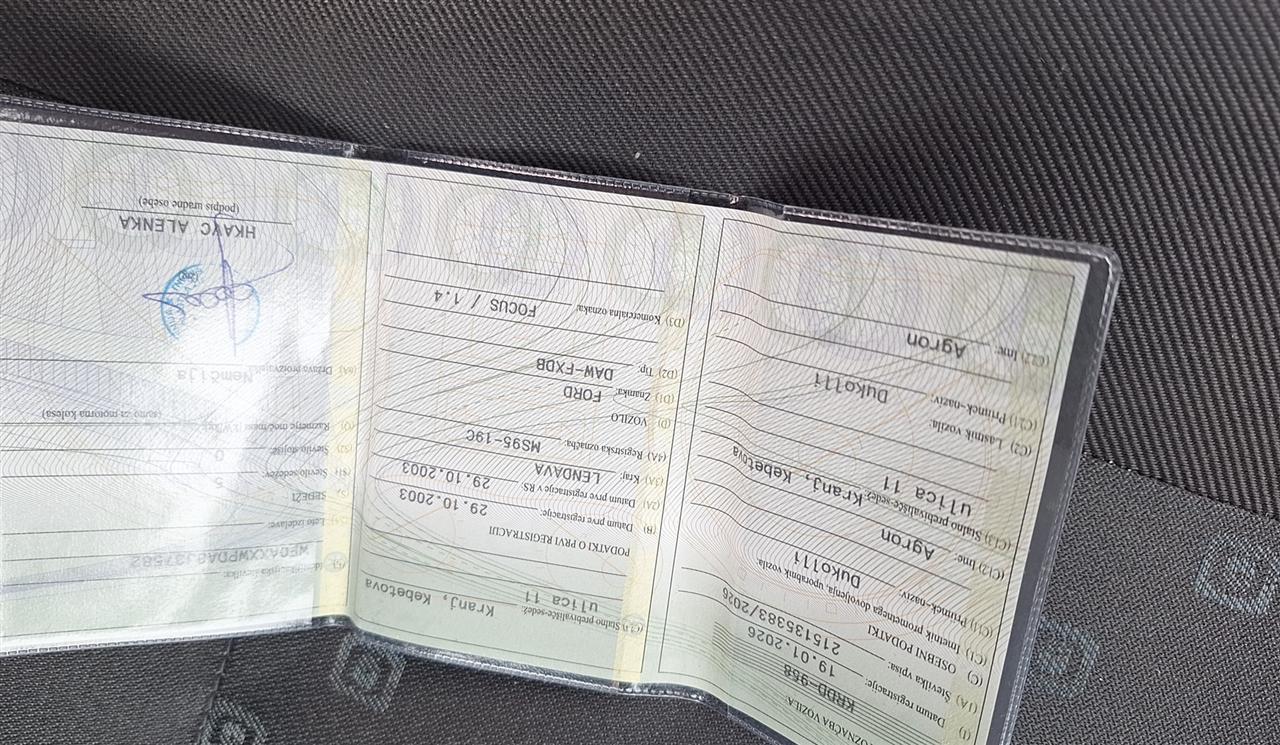 OZNAČBA VOZILA:
KRDD-958
(I) Datum registracije: 19.01.2026
(1A) Številka vpisa: 215135383/2026
(C) OSEBNI PODATKI
(C1) Imetnik prometnega dovoljenja, uporabnik vozila:
(C1.1) Priimek-naziv: Dukolli
(C1.2) Ime: Agron
(C1.3) Stalno prebivališče-sedež: Kranj, Kebetova
ulica 11
(C2) Lastnik vozila:
(C2.1) Priimek-naziv: Dukolli
(C2.2) Ime: Agron
Stalno prebivališče-sedež: Kranj, Kebetova
ulica 11
PODATKI O PRVI REGISTRACIJI
(B) Datum prve registracije: 29.10.2003
(2A) Datum prve registracije v RS: 29.10.2003
(3A) Kraj: LENDAVA
(4A) Registrska označba: MS95-19C
(D) VOZILO
(D1) Znamka: FORD
(D2) Tip: DAW-FXDB
(D3) Komercialna oznaka: FOCUS / 1.4
(E) Identifikacijska številka:
Leto izdelave:
SEDEŽI
(S1) Število sedežev: 5
(S2) Število stojišč: 0
(Q) Razmerje moč/masa
(samo za motorna kolesa)
(6A) Država proizvajalka: Nemčija
HKAVC ALENKA
(podpis uradne osebe)